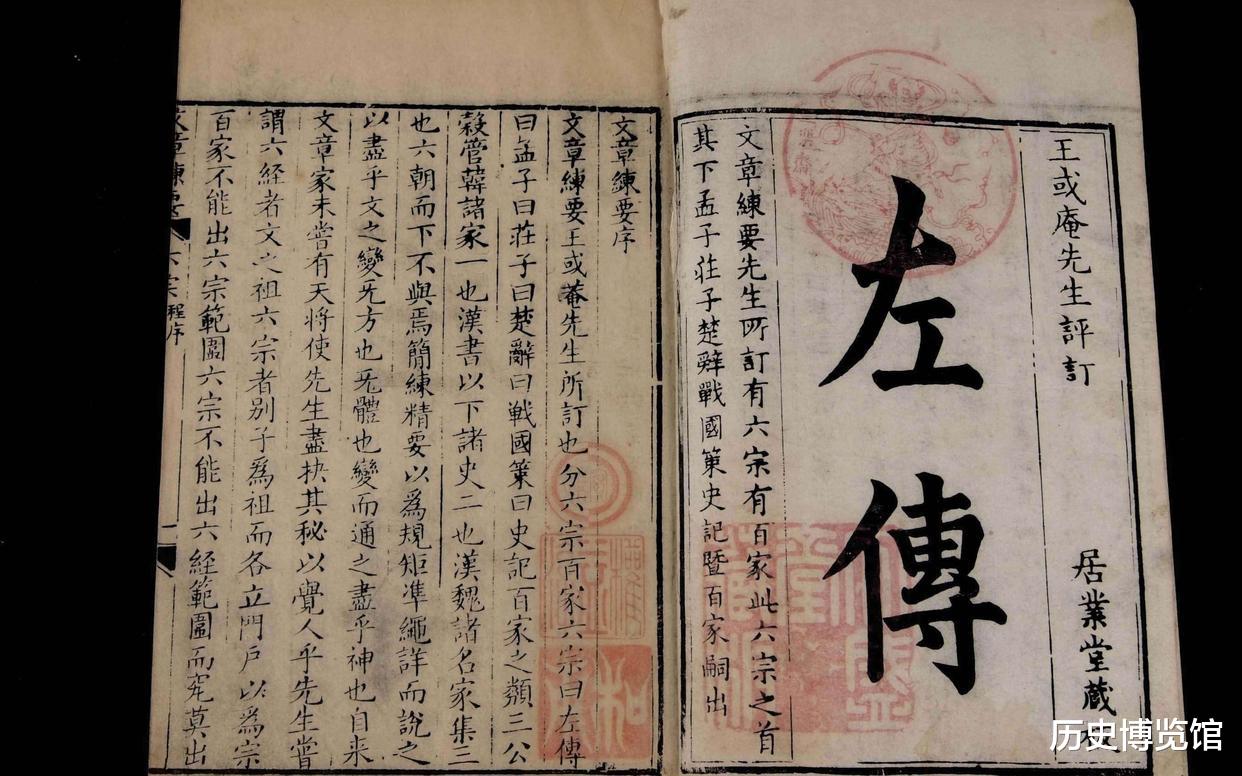 王或庵先生評訂
居業堂蔵
左傳
文章練要先生所訂有六宗有百家此六宗之首
其下孟子莊子楚辭戰國策史記暨百家嗣出
文章練要序
文章練要王或菴先生所訂也分六宗百家六宗曰左傳
曰孟子曰莊子曰楚辭曰戰國策曰史記百家之類三公
穀管韓諸家一也漢書以下諸史二也漢魏諸名家集三
也六朝而下不與焉簡練精要以爲規矩準繩詳而說之
以盡乎文之變旡方也旡體也變而通之盡乎神也自来
文章家未嘗有天將使先生盡抉其秘以覺人乎先生嘗
謂六經者文之祖六宗者别子爲祖而各立門戶以爲宗
百家不能出六宗範圍六宗不能出六經範圍而究莫出
文章練要
六宗 程序
一
历史博览馆